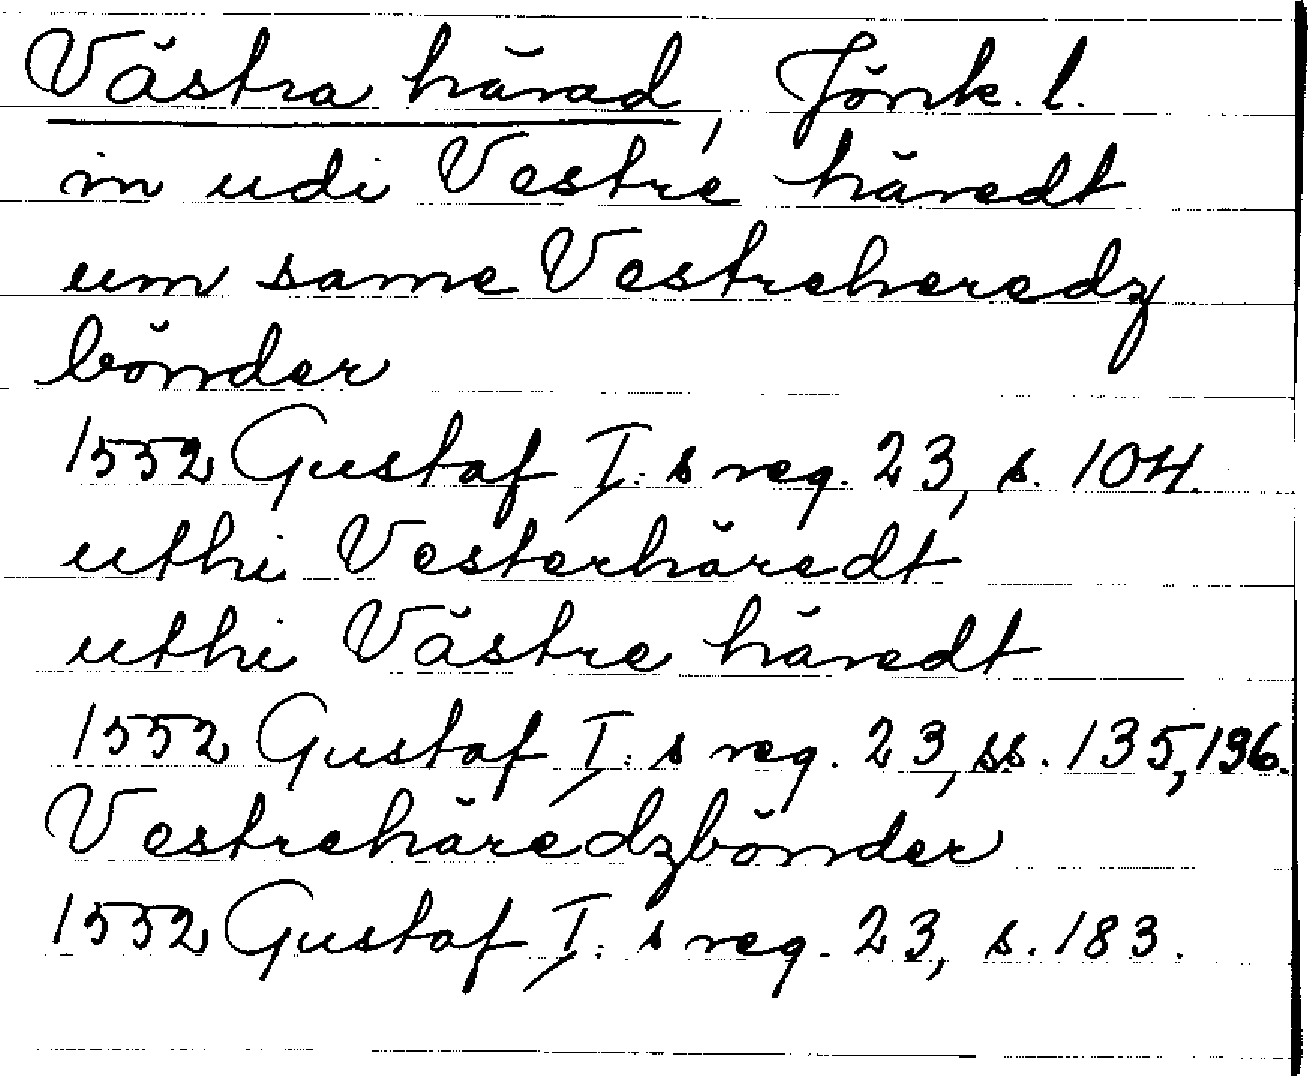 Västra härad, Jönk. l.
in udi Vestre häredt
um same Vestreheredz
bönder
1552 Gustaf I:s reg. 23, s. 104.
uthi Vesterhäredt
uthi Västre häredt
1552 Gustaf I:s reg. 23, ss. 135, 136.
Vestrehäredzbönder
1552 Gustaf I:s reg. 23, s. 183.